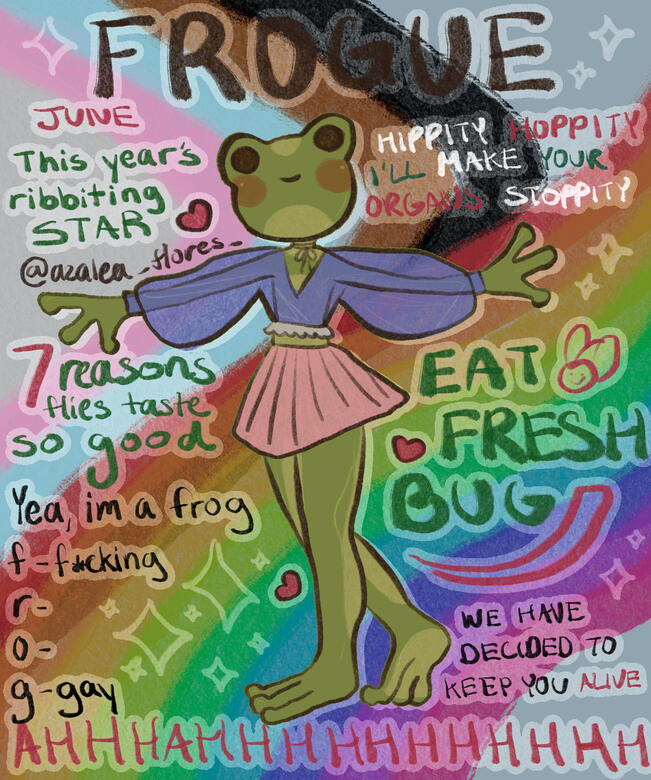 FROGUE
JUNE
This year's
ribbiting
STAR
@azalea_flores_
HIPPITY HOPPITY
I'LL MAKE YOUR
ORGANS STOPPITY
7 reasons
flies taste
so good
EAT
FRESH
BUG
Yea, im a frog
f-f*cking
r-
o-
g-gay
WE HAVE
DECIDED TO
KEEP YOU ALIVE
AHHHAHHHHHHHHHHHHH